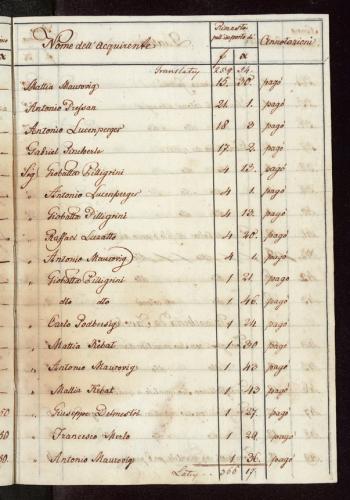 Nome dell' Acquirente Rimesto pell' importo di Annotazioni
f x
Translatu 259 14
Mattia Maurovig 15 30 pagò
Antonio Pressan 21 1 pagò
Antonio Lucenperger 18 3 pagò
Gabriel Pincherle 17 2 pagò
Sig Giobatta Pelligrini 4 13 pagò
" Antonio Lucenperger 4 1 pagò
" Giobatta Pelligrini 4 13 pagò
" Raffael Luzatto 4 20 pagò
" Antonio Maurovig 4 1 pagò
" Giobatta Pelligrini 1 21 pagò
" dto dto 1 46 pagò
" Carlo Podbersig 1 24 pagò
" Mattia Kebat 1 30 pagò
" Antonio Maurovig 1 43 pagò
" Mattia Kebat 1 43 pagò
" Giuseppe Delmestri 1 27 pagò
" Francesco Merlo 1 20 pagò
" Antonio Maurovig 1 36 pagò
Latus 366 17